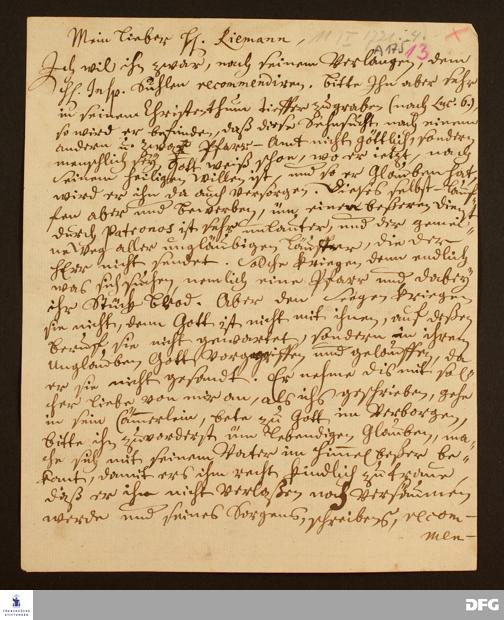 Mein lieber H. Riemann,
A 175
13
Ich wil ihn zwar, nach seinem Verlangen, dem
H. Insp. Suhlen recommendiren. bitte Ihn aber sehr
in seinem Christenthum tieffer zu graben (nach Luc. 6.)
so wird er befinden, daß diese Sehnsucht, nach einem
andern u. zwar Pfarr-Amt nicht göttlich, sondern
menschlich sey. Gott weiß schon, wo er ietzt, nach
seinem heiligen Willen ist, und so er Glauben hat,
wird er ihn da auch versorgen. Dieses selbst Lauf-
fen aber und bewerben, üm einen beßeren Dienst
durch Patronos ist sehr unlauter, und der gemei-
ne Weg aller ungläubigen Läuffer, die der
Herr nicht sendet. Solche kriegen denn endlich
was sie suchen, nemlich eine Pfarr und dabey
ihr Stück Brod. Aber den Seegen kriegen
sie nicht, denn Gott ist nicht mit ihnen, auf deßen
beruf sie nicht gewartet, sondern in ihrem
Unglauben Gott vorgegriffen und gelauffen, da
er sie nicht gesandt. Er nehme dis mit sol-
cher liebe von mir an, als ichs geschrieben, gehe
in sein Cämmerlein, bete zu Gott im Verborgen,
bitte ihn zuvorderst üm lebendigen Glauben, ma-
che sich mit seinem Vater im Himel beßer be-
kant, damit ers ihm recht kindlich zutraue
daß er ihn nicht verlaßen noch versäumen
werde und seines Sorgens, schreibens, recom-
men-
FRANCKESCHE
STIFTUNGEN
DFG